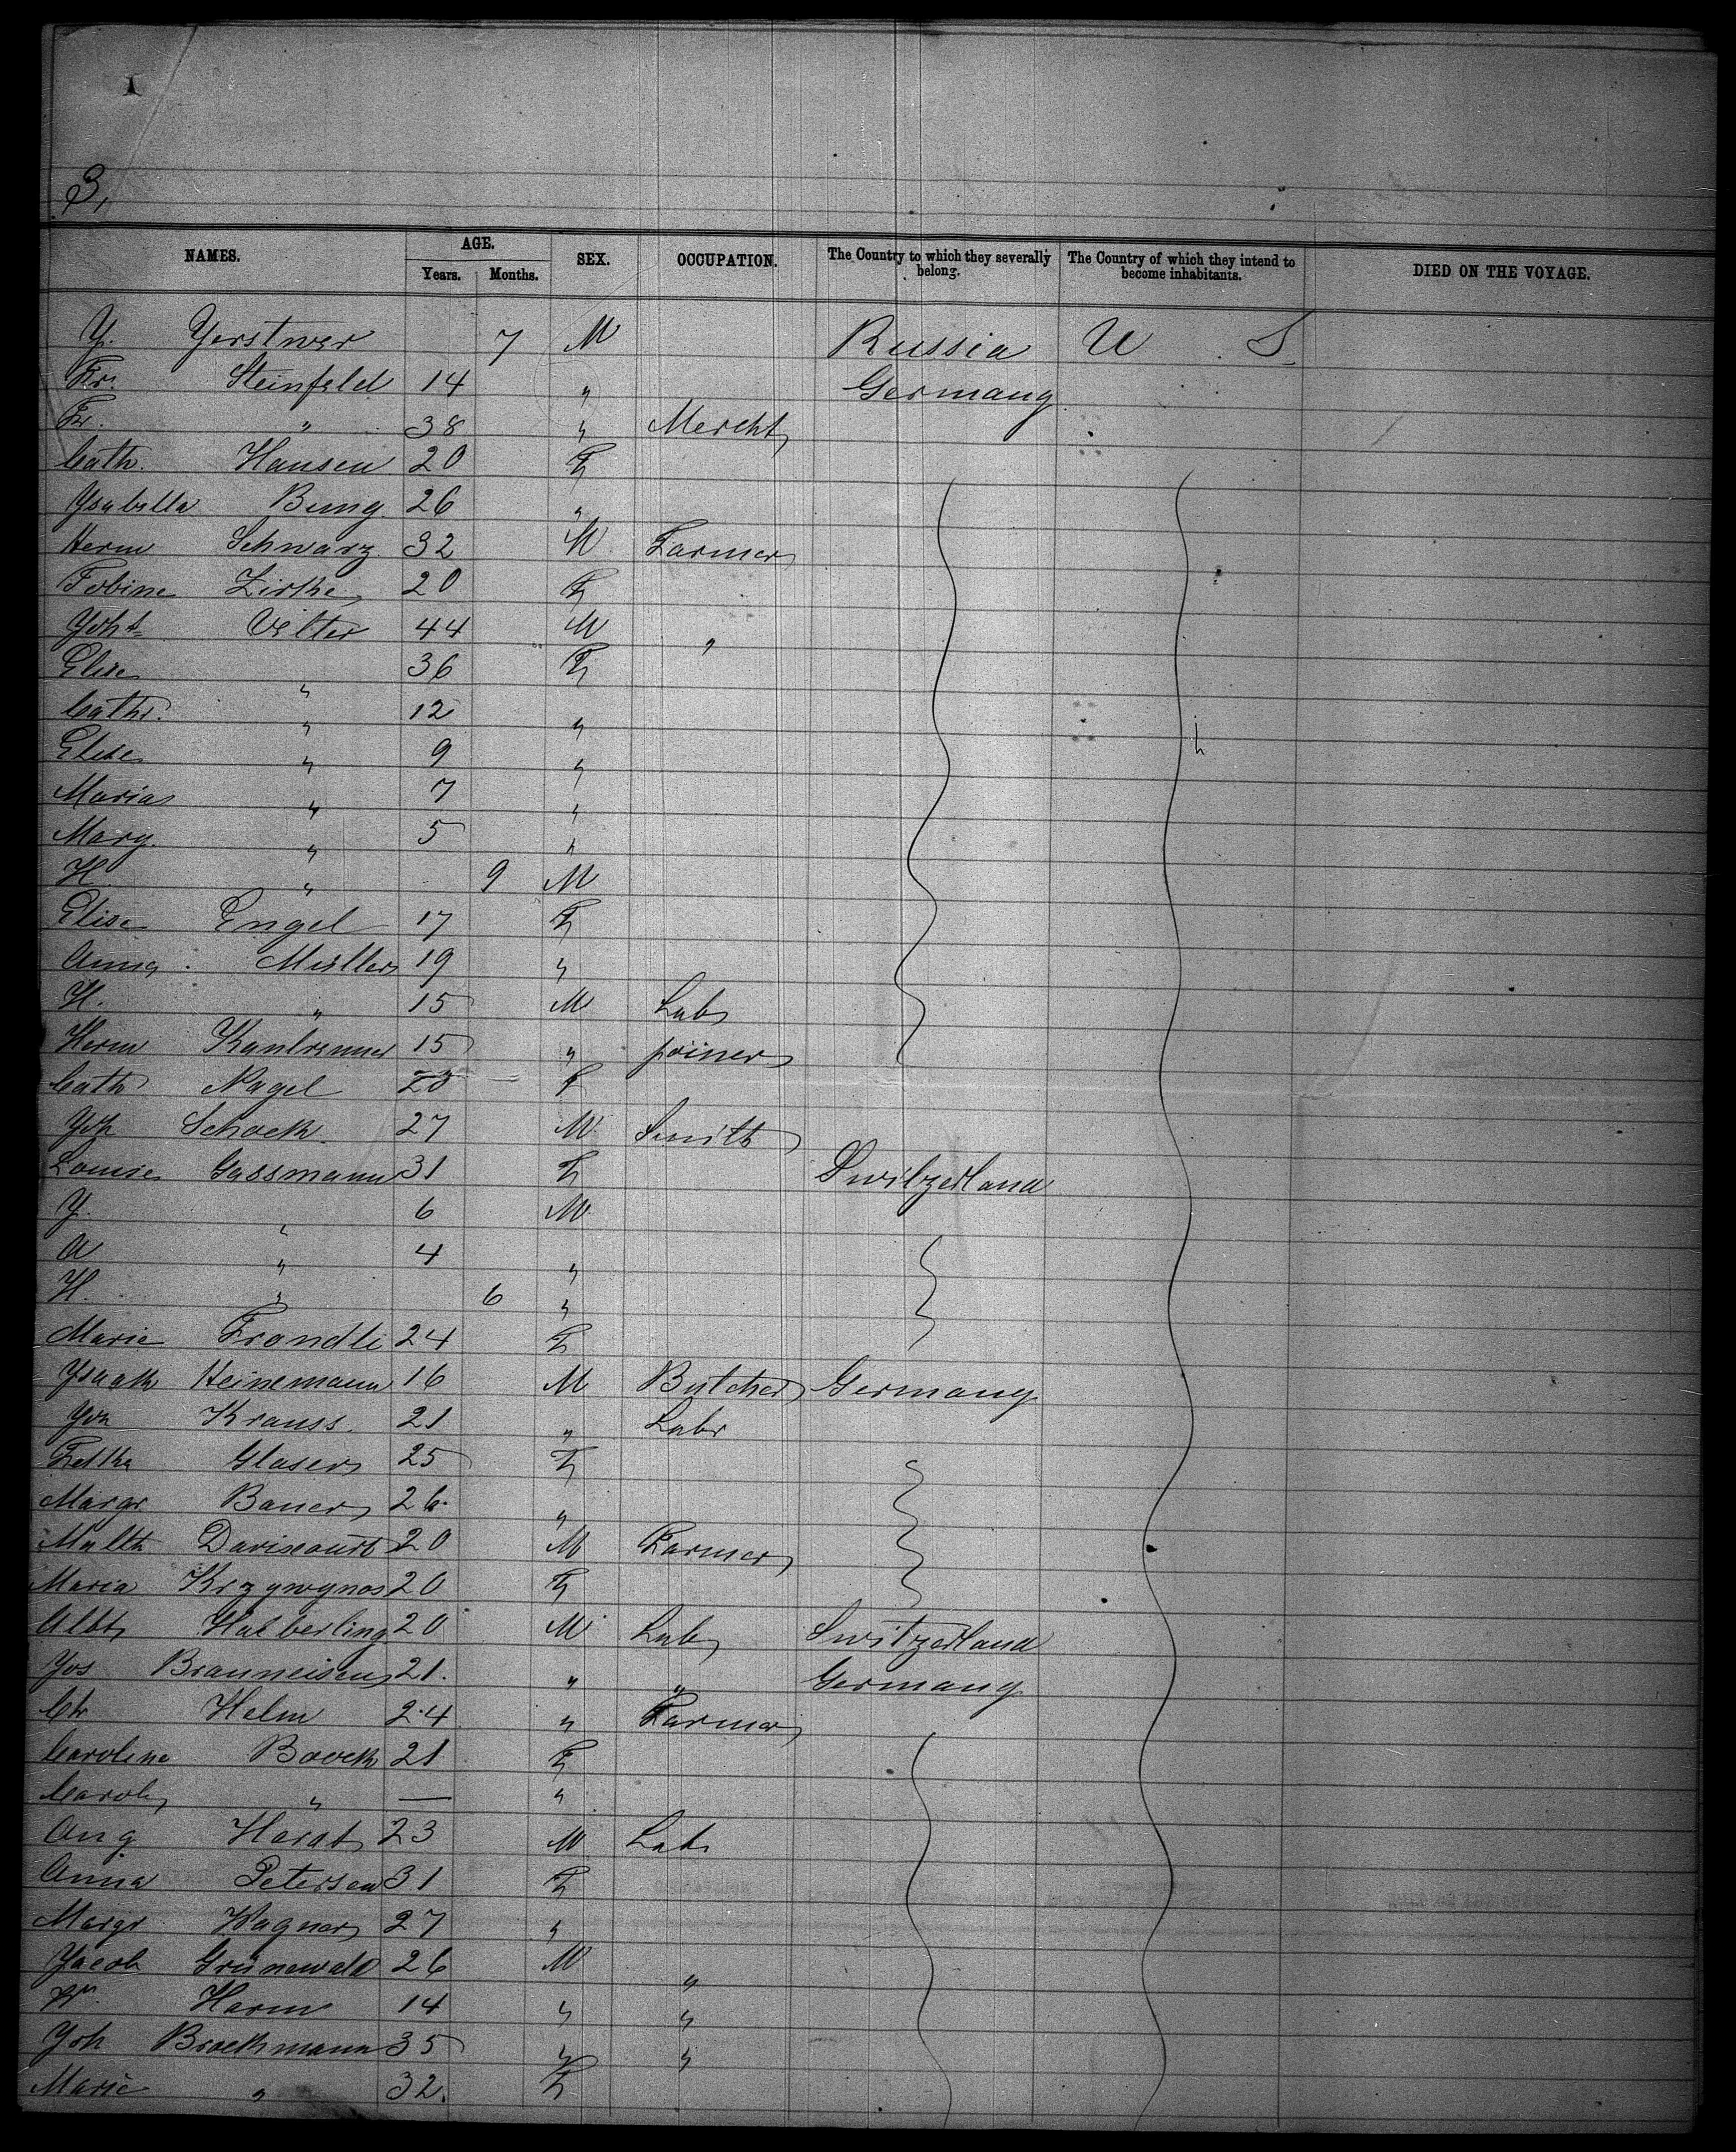 3,
NAMES. AGE. SEX. OCCUPATION. The Country to which they severally belong. The Country of which they intend to become inhabitants. DIED ON THE VOYAGE.
Years. Months.
Y. Yerstwer 7 M Russia U S
Fr. Steinfeld 14 " Germany
Fr. " 38 " Mercht
Cath. Hansen 20 F
Ysabella Bung 26 "
Herm Schwarz 32 M Farmer
Tobine Zirke 20 F
Joh Velter 44 M "
Elise " 36 F
Cathr. " 12 "
Elise " 9 "
Maria " 7 "
Marg. " 5 "
H. " 9 M
Elise Engel 17 F
Anna Müller 19 "
H. " 15 M Lab
Herm 15 " joiner
Cath Nagel F
Joh Schoek 27 M Smith
Louise Gassmann 31 F Switzerland
Y. " 6 M
A " 4 "
H. " 6 "
Marie Frondli 24 F
Ysaak Heinemann 16 M Butcher Germany
Joh Krauss 21 " Labr
Glaser 25 F
Margr Bauer 26 "
Daviscourt 20 M Farmer
Maria Krzywynos 20 F
Albt Haeberling 20 M Lab Switzerland
Jos Brauneisen 21. " " Germany
Chr Helm 24 " Farmer
Caroline Boock 21 F
Carol " — "
Aug. Harat 23 M Lab
Anna Petersen 31 F
Margr Wagner 27 "
Jacob Grünewald 26 M "
Harm 14 " "
Joh Brockmann 35 " "
Marie " 32. F